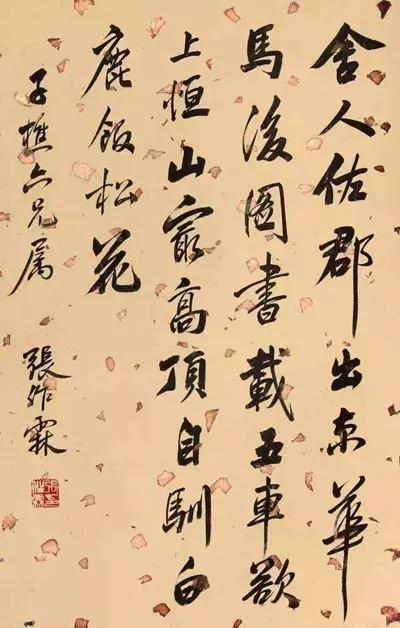 舍人佐郡出京華
馬後圖書載五車欲
上恒山最高頂自馴白
鹿飯松花
子樵六兄属
張作霖